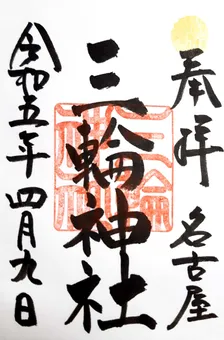 奉拝 名古屋
三輪神社
令和五年四月九日